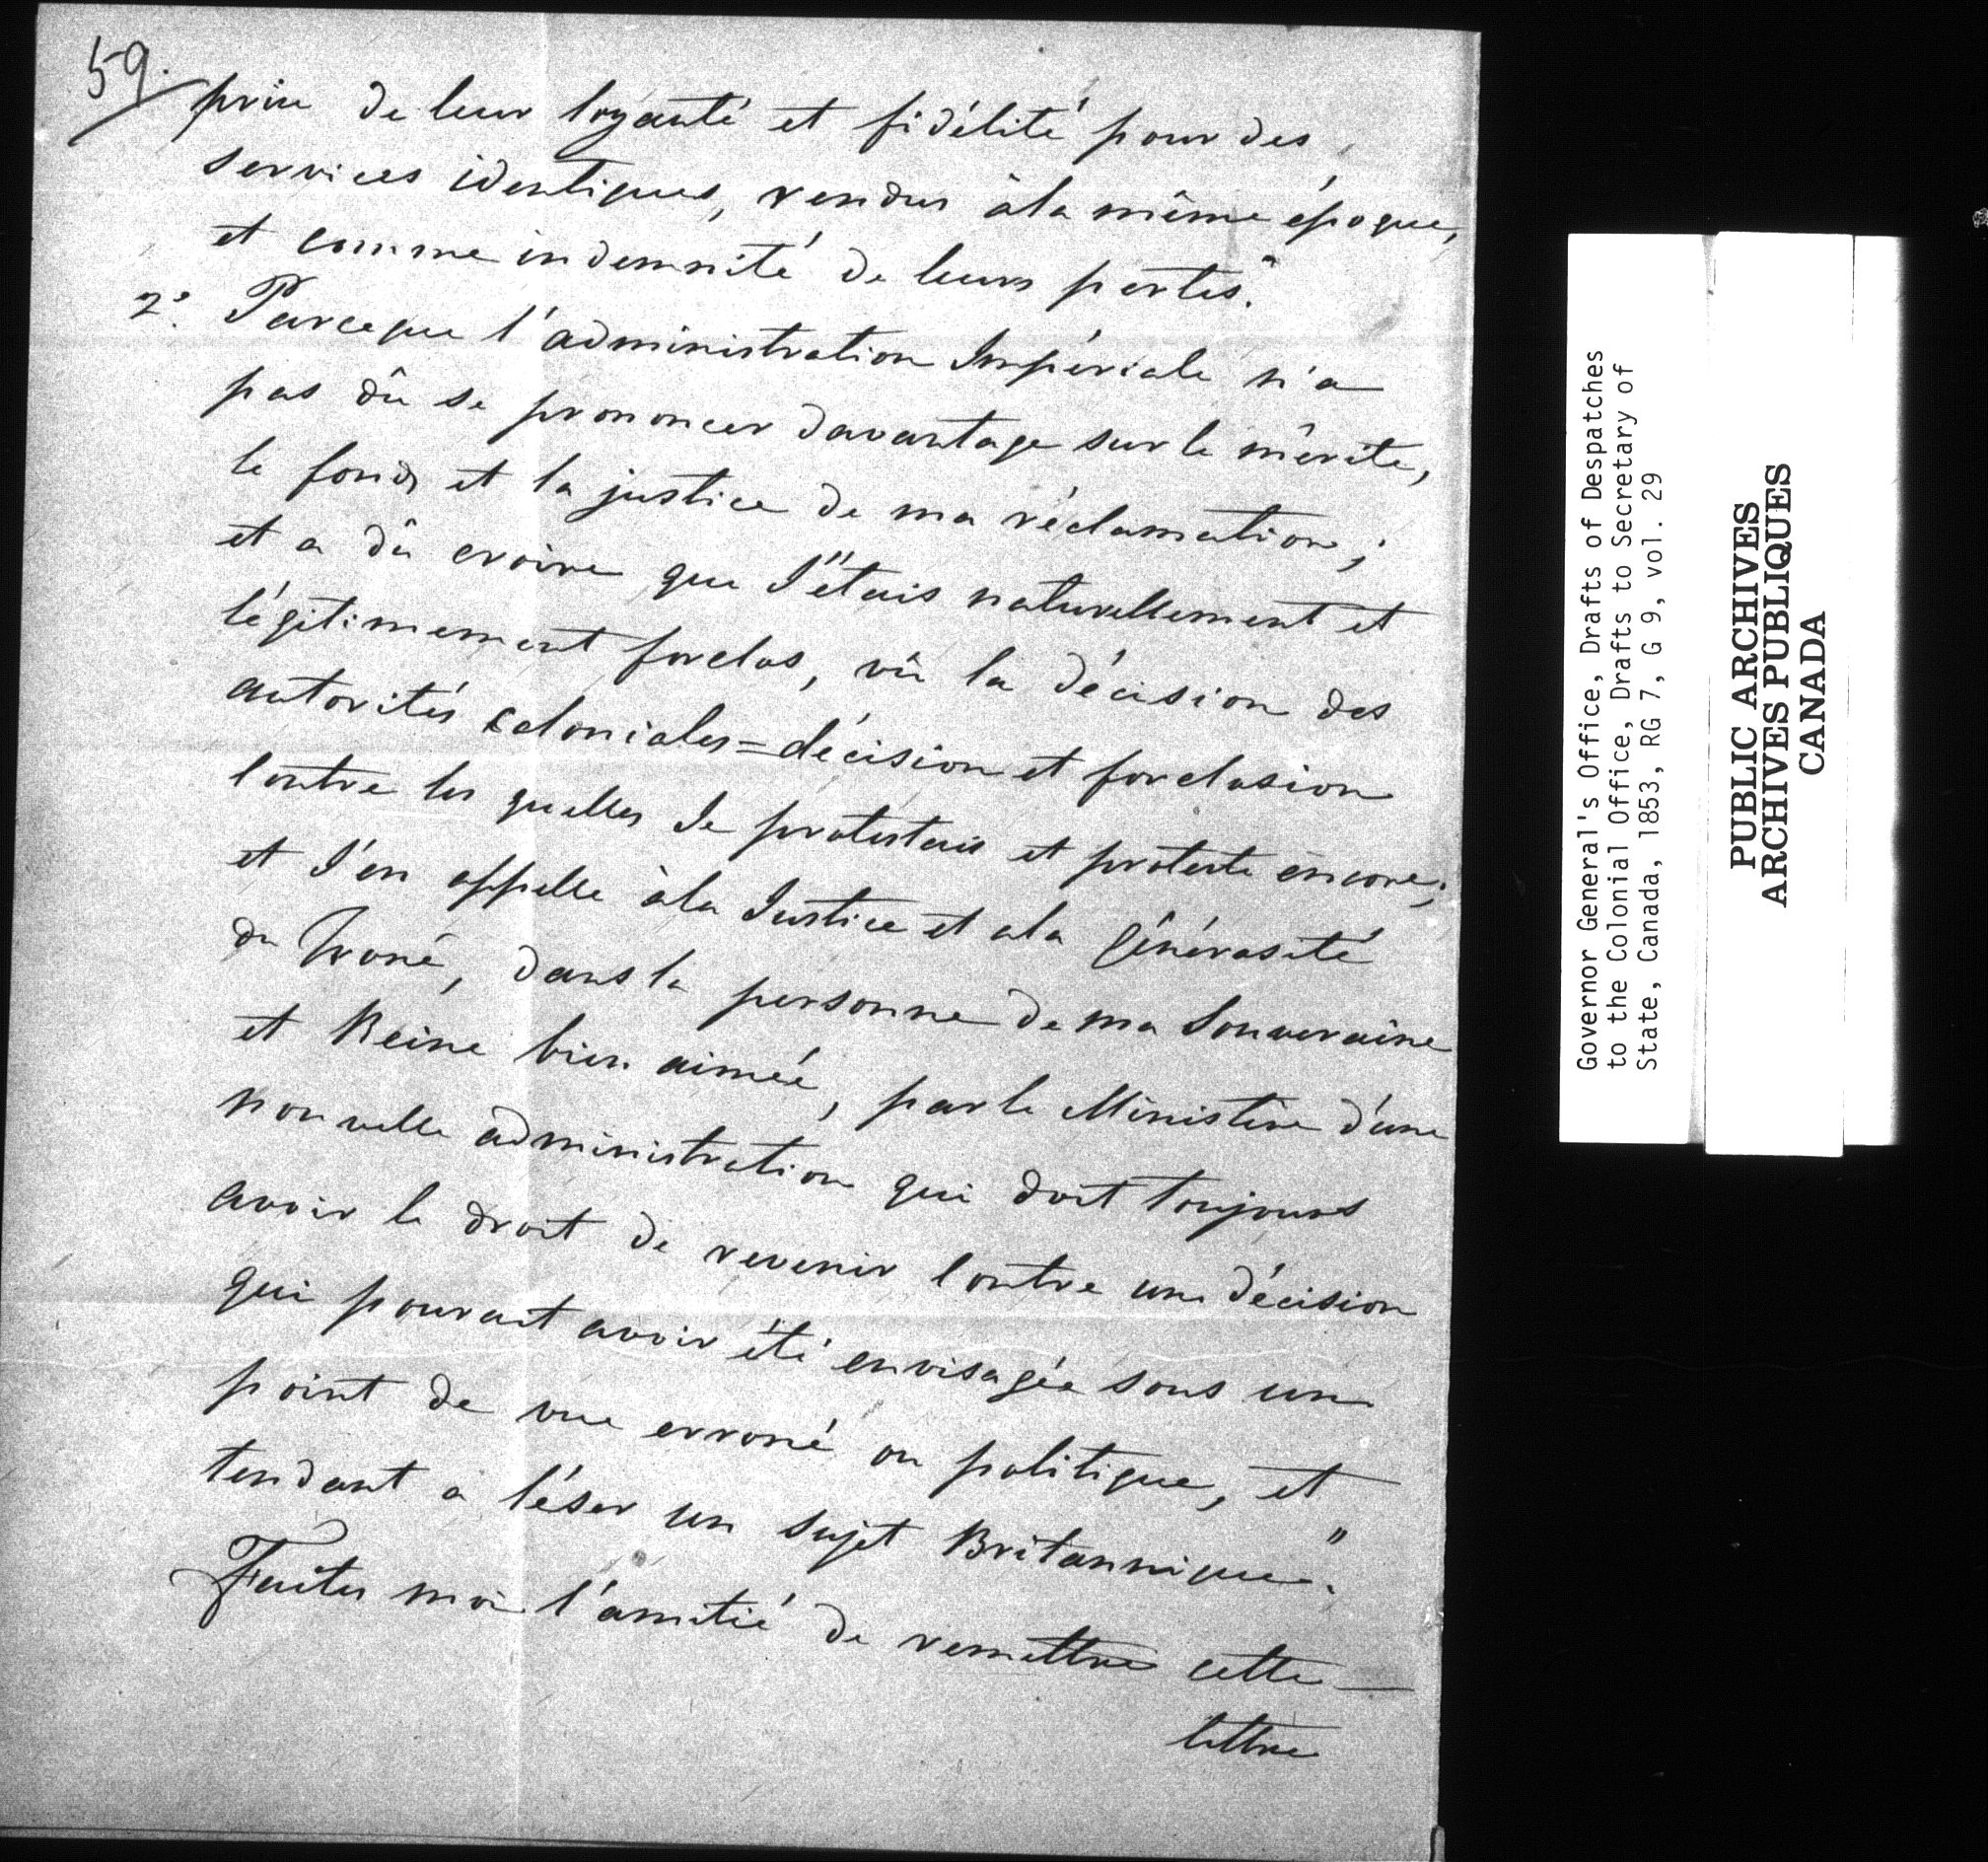 59.
prix de leur loyauté et fidélité pour des
services identiques, rendus à la même époque,
et comme indemnité de leurs pertes."
2º. Parceque l'administration Impériale n'a
pas dû se prononcer davantage sur le mérite,
le fonds et la justice de ma réclamation;
et a dû croire que J'étais naturellement et
légitimement forclos, vû la décision des
autorités coloniales = décision et forclusion
contre les quelles Je protestais et proteste encore;
et J'en appelle à la Justice et a la générosité
du Trône, dans la personne de ma Souveraine
et Reine bien aimée, par le Ministère d'une
nouvelle administration qui doit toujours
avoir le droit de revenir contre une décision
qui pourait avoir été envisagée sous un
point de vue erroné ou politique, et
tendant a léser un sujet Britannique."
Faites moi l'amitié de remettre cette
lettre
Governor General's Office, Drafts of Despatches
to the Colonial Office, Drafts to Secretary of
State, Canada, 1853, RG 7, G 9, vol. 29
PUBLIC ARCHIVES
ARCHIVES PUBLIQUES
CANADA